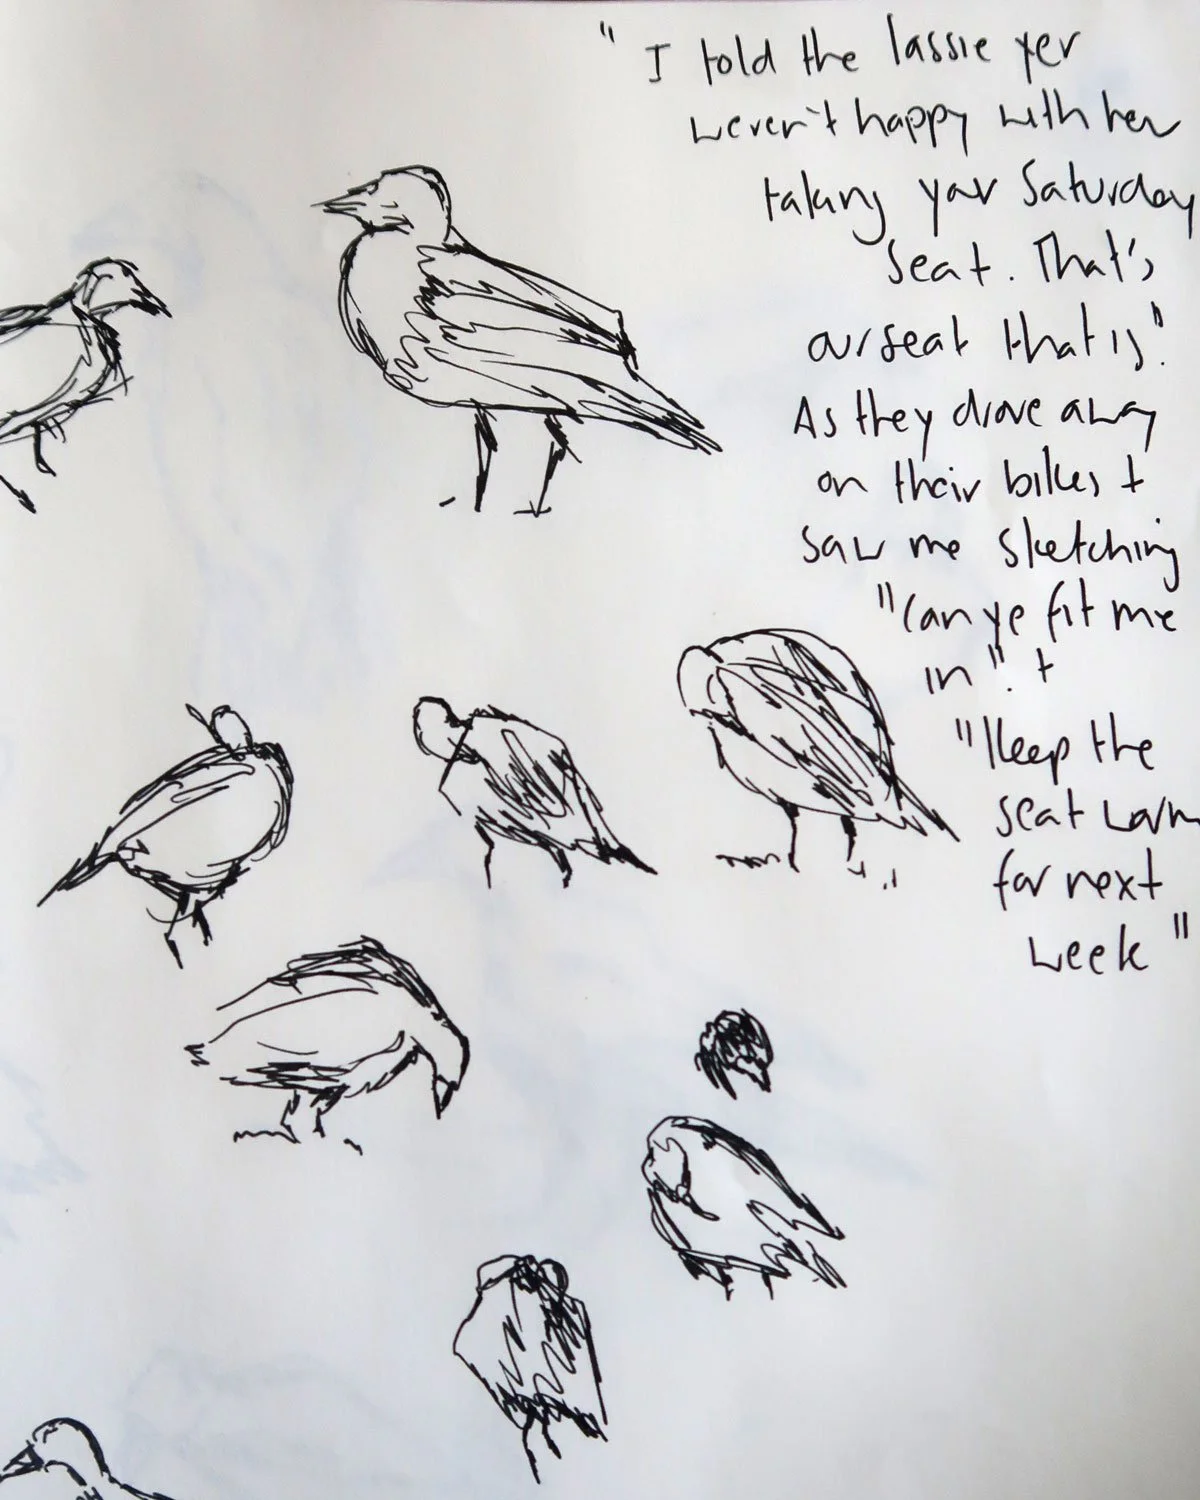 " I told the lassie yer
weren't happy with her
taking yar Saturday
seat. That's
our seat that is".
As they drove away
on their bikes +
saw me sketching
"Can ye fit me
in". +
"Keep the
seat warm
for next
week"